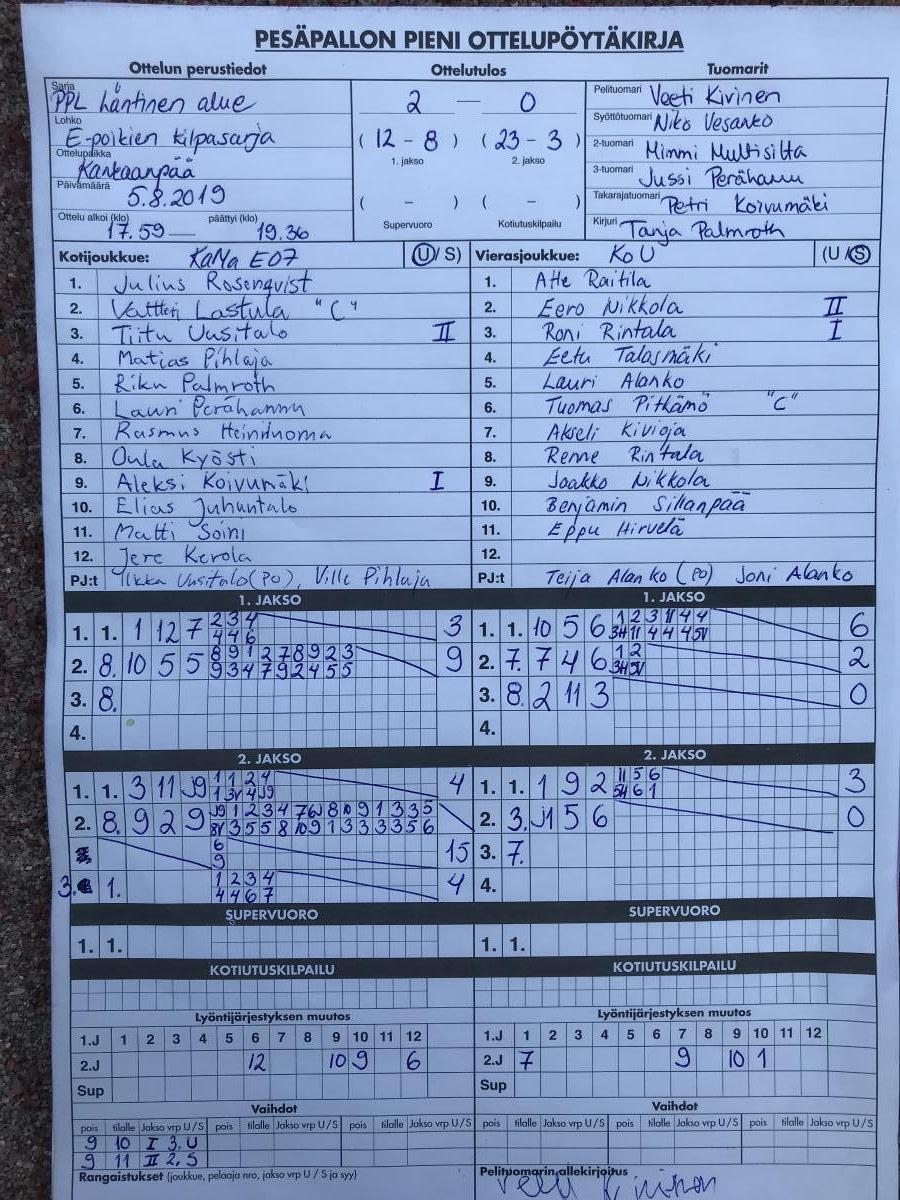 PESÄPALLON PIENI OTTELUPÖYTÄKIRJA
Ottelun perustiedot Ottelutulos Tuomarit
Sarja PPL Läntinen alue 2 — 0 Pelituomari Veeti Kivinen
Lohko E-poikien kilpasarja ( 12 - 8 ) ( 23 - 3 ) Syöttötuomari Niko Vesanko
1. jakso 2. jakso
Ottelupaikka Kankaanpää 2-tuomari Mimmi Multisilta
Päivämäärä 5.8.2019 ( - ) ( - ) 3-tuomari Jussi Perähannu
Supervuoro Kotiutuskilpailu Takarajatuomari Petri Koivumäki
Ottelu alkoi (klo) 17.59 — päättyi (klo) 19.36 Kirjuri Tanja Palmroth
Kotijoukkue: KaMa E07 (U/S) Vierasjoukkue: KoU (U/S)
1. Julius Rosenqvist 1. Atte Raitila
2. Valtteri Lastula "C" 2. Eero Nikkola II
3. Tiitu Uusitalo II 3. Roni Rintala I
4. Matias Pihlaja 4. Eetu Talasmäki
5. Riku Palmroth 5. Lauri Alanko
6. Lauri Perähannu 6. Tuomas Pitkämö "C"
7. Rasmus Heiniluoma 7. Akseli Kivioja
8. Oula Kyösti 8. Renne Rintala
9. Aleksi Koivumäki I 9. Jaakko Nikkola
10. Elias Juhantalo 10. Benjamin Sillanpää
11. Matti Soini 11. Eppu Hirvelä
12. Jere Kerola 12.
PJ:t Ilkka Uusitalo (PO), Ville Pihlaja PJ:t Teija Alanko (PO) Joni Alanko
1. JAKSO 1. JAKSO
2 3 4 1 2 3 11 4 4
1. 1. 1 12 7 4 4 6 3 1. 1. 10 5 6 3H 11 4 4 4 5V 6
8 9 1 2 7 8 9 2 3 1 2
2. 8. 10 5 5 9 3 4 7 9 2 4 5 5 9 2. 7. 7 4 6 3H 5V 2
3. 8. 3. 8. 2 11 3 0
4. 4.
2. JAKSO 2. JAKSO
1 1 2 4 11 5 6
1. 1. 3 11 J9 1 3V 4 J9 4 1. 1. 1 9 2 5H 6 1 3
J9 1 2 3 4 7 6J 8 10 9 1 3 3 5
2. 8. 9 2 9 8V 3 5 5 8 10 9 1 3 3 3 3 5 6 2. 3. J1 5 6 0
6
9 15 3. 7.
1 2 3 4
3. 1. 4 4 6 7 4 4.
SUPERVUORO SUPERVUORO
1. 1. 1. 1.
KOTIUTUSKILPAILU KOTIUTUSKILPAILU
Lyöntijärjestyksen muutos Lyöntijärjestyksen muutos
1.J 1 2 3 4 5 6 7 8 9 10 11 12 1.J 1 2 3 4 5 6 7 8 9 10 11 12
2.J 12 10 9 6 2.J 7 9 10 1
Sup Sup
Vaihdot Vaihdot
pois tilalle Jakso vrp U/S pois tilalle Jakso vrp U/S pois tilalle Jakso vrp U/S pois tilalle Jakso vrp U/S pois tilalle Jakso vrp U/S pois tilalle Jakso vrp U/S
9 10 I 3. U
9 11 II 2. S
Rangaistukset (joukkue, pelaaja nro, jakso vrp U / S ja syy) Pelituomarin allekirjoitus